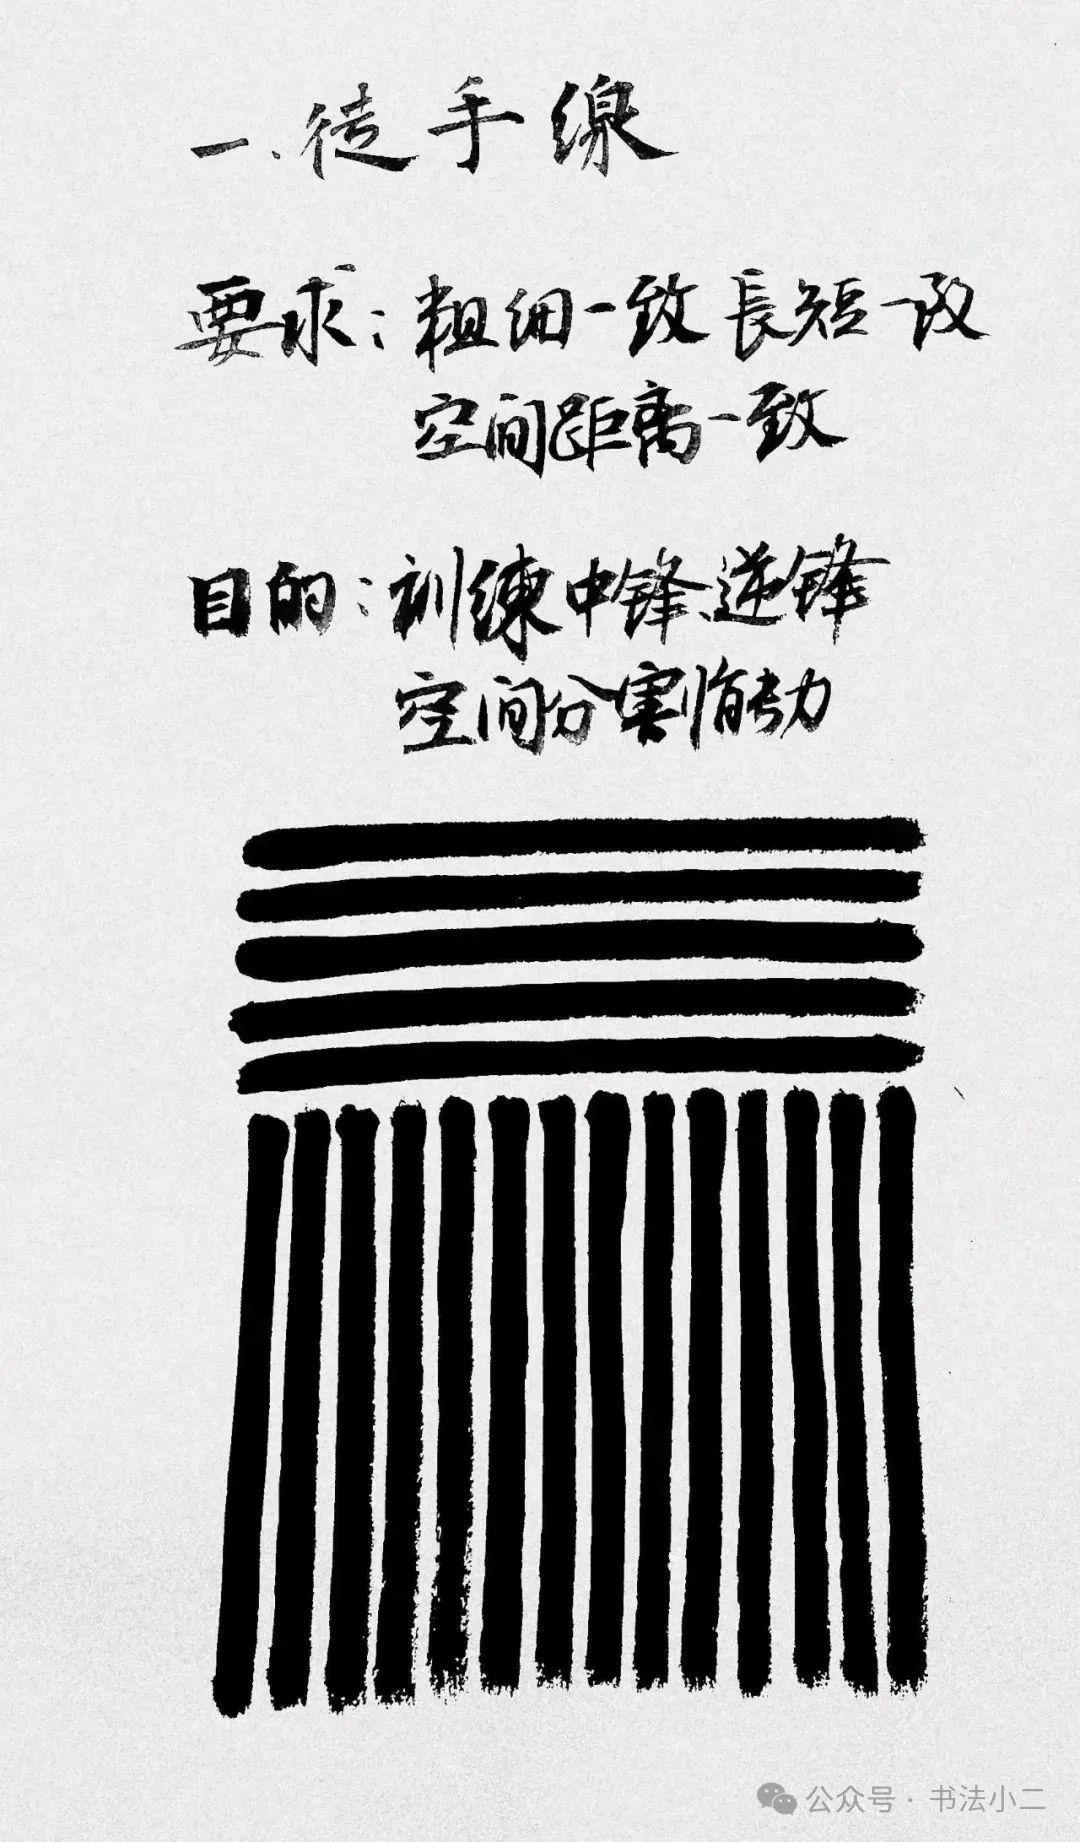 一、徒手线
要求：粗细一致 長短一致
空间距离一致
目的：训练中锋、逆锋
空间分割
公众号 · 书法小二